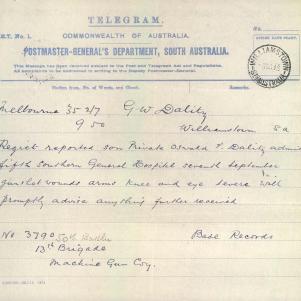 TELEGRAM.
COMMONWEALTH OF AUSTRALIA.
POSTMASTER-GENERAL'S DEPARTMENT, SOUTH AUSTRALIA.
This Message has been received subject to the Post and Telegraph Act and Regulations.
All complaints to be addressed in writing to the Deputy Postmaster-General.
Station from, No. of Words, and Check.
Remarks.
No.
WILLIAMSTOWN
Melbourne 35 2/7 G W Dality
9 50 Williamstown S a
Regret reported son Private Oswald F Dality admitted
fifth Southern General Hospital seventh September
gunshot wounds arms knee and eye severe will
promptly advise anything further received
No 3790 50th Battn Base Records
13th Brigade
Machine Gun Coy.